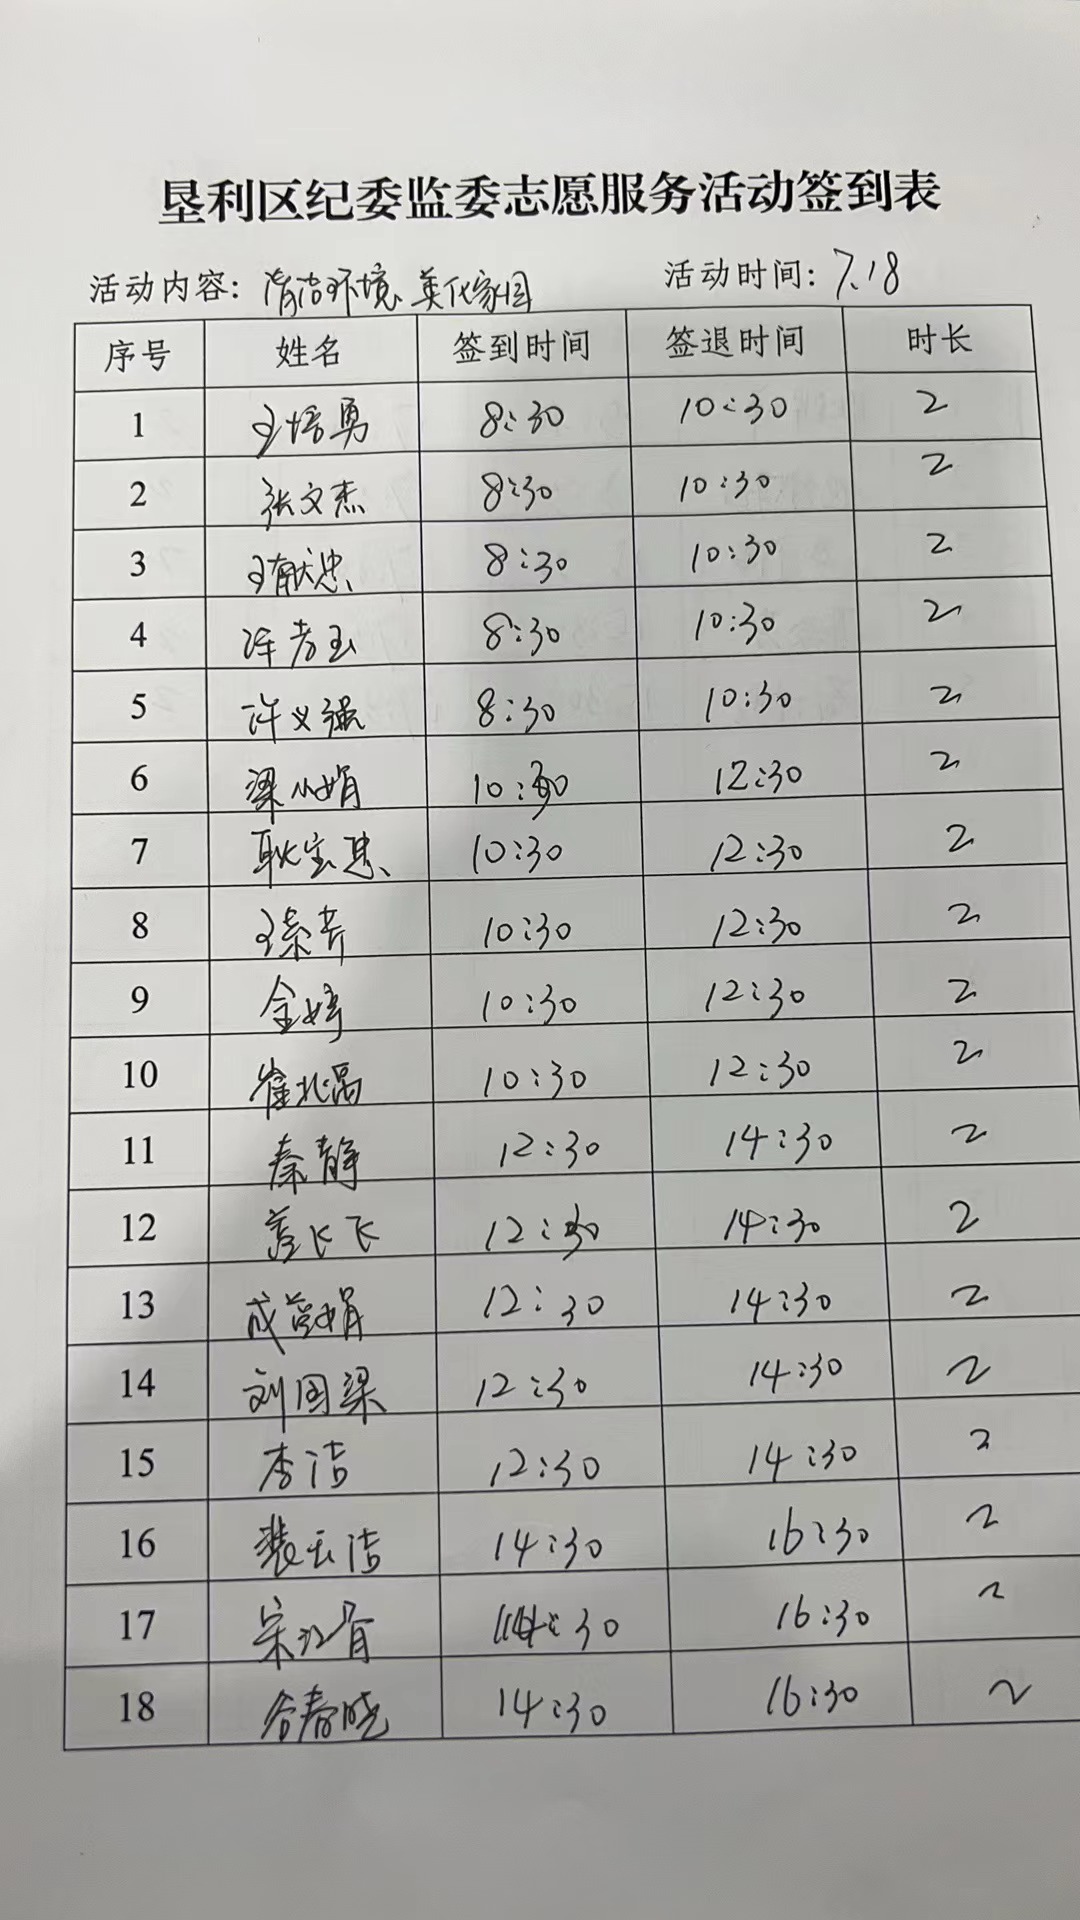 垦利区纪委监委志愿服务活动签到表
活动内容：清洁环境、美化家园 活动时间：7.18
序号 姓名 签到时间 签退时间 时长
1 王培勇 8:30 10:30 2
2 张文杰 8:30 10:30 2
3 王献忠 8:30 10:30 2
4 8:30 10:30 2
5 许义强 8:30 10:30 2
6 梁小娟 10:30 12:30 2
7 耿宝忠 10:30 12:30 2
8 10:30 12:30 2
9 金婷 10:30 12:30 2
10 10:30 12:30 2
11 秦静 12:30 14:30 2
12 12:30 14:30 2
13 12:30 14:30 2
14 刘国梁 12:30 14:30 2
15 李洁 12:30 14:30 2
16 裴玉洁 14:30 16:30 2
17 14:30 16:30 2
18 14:30 16:30 2